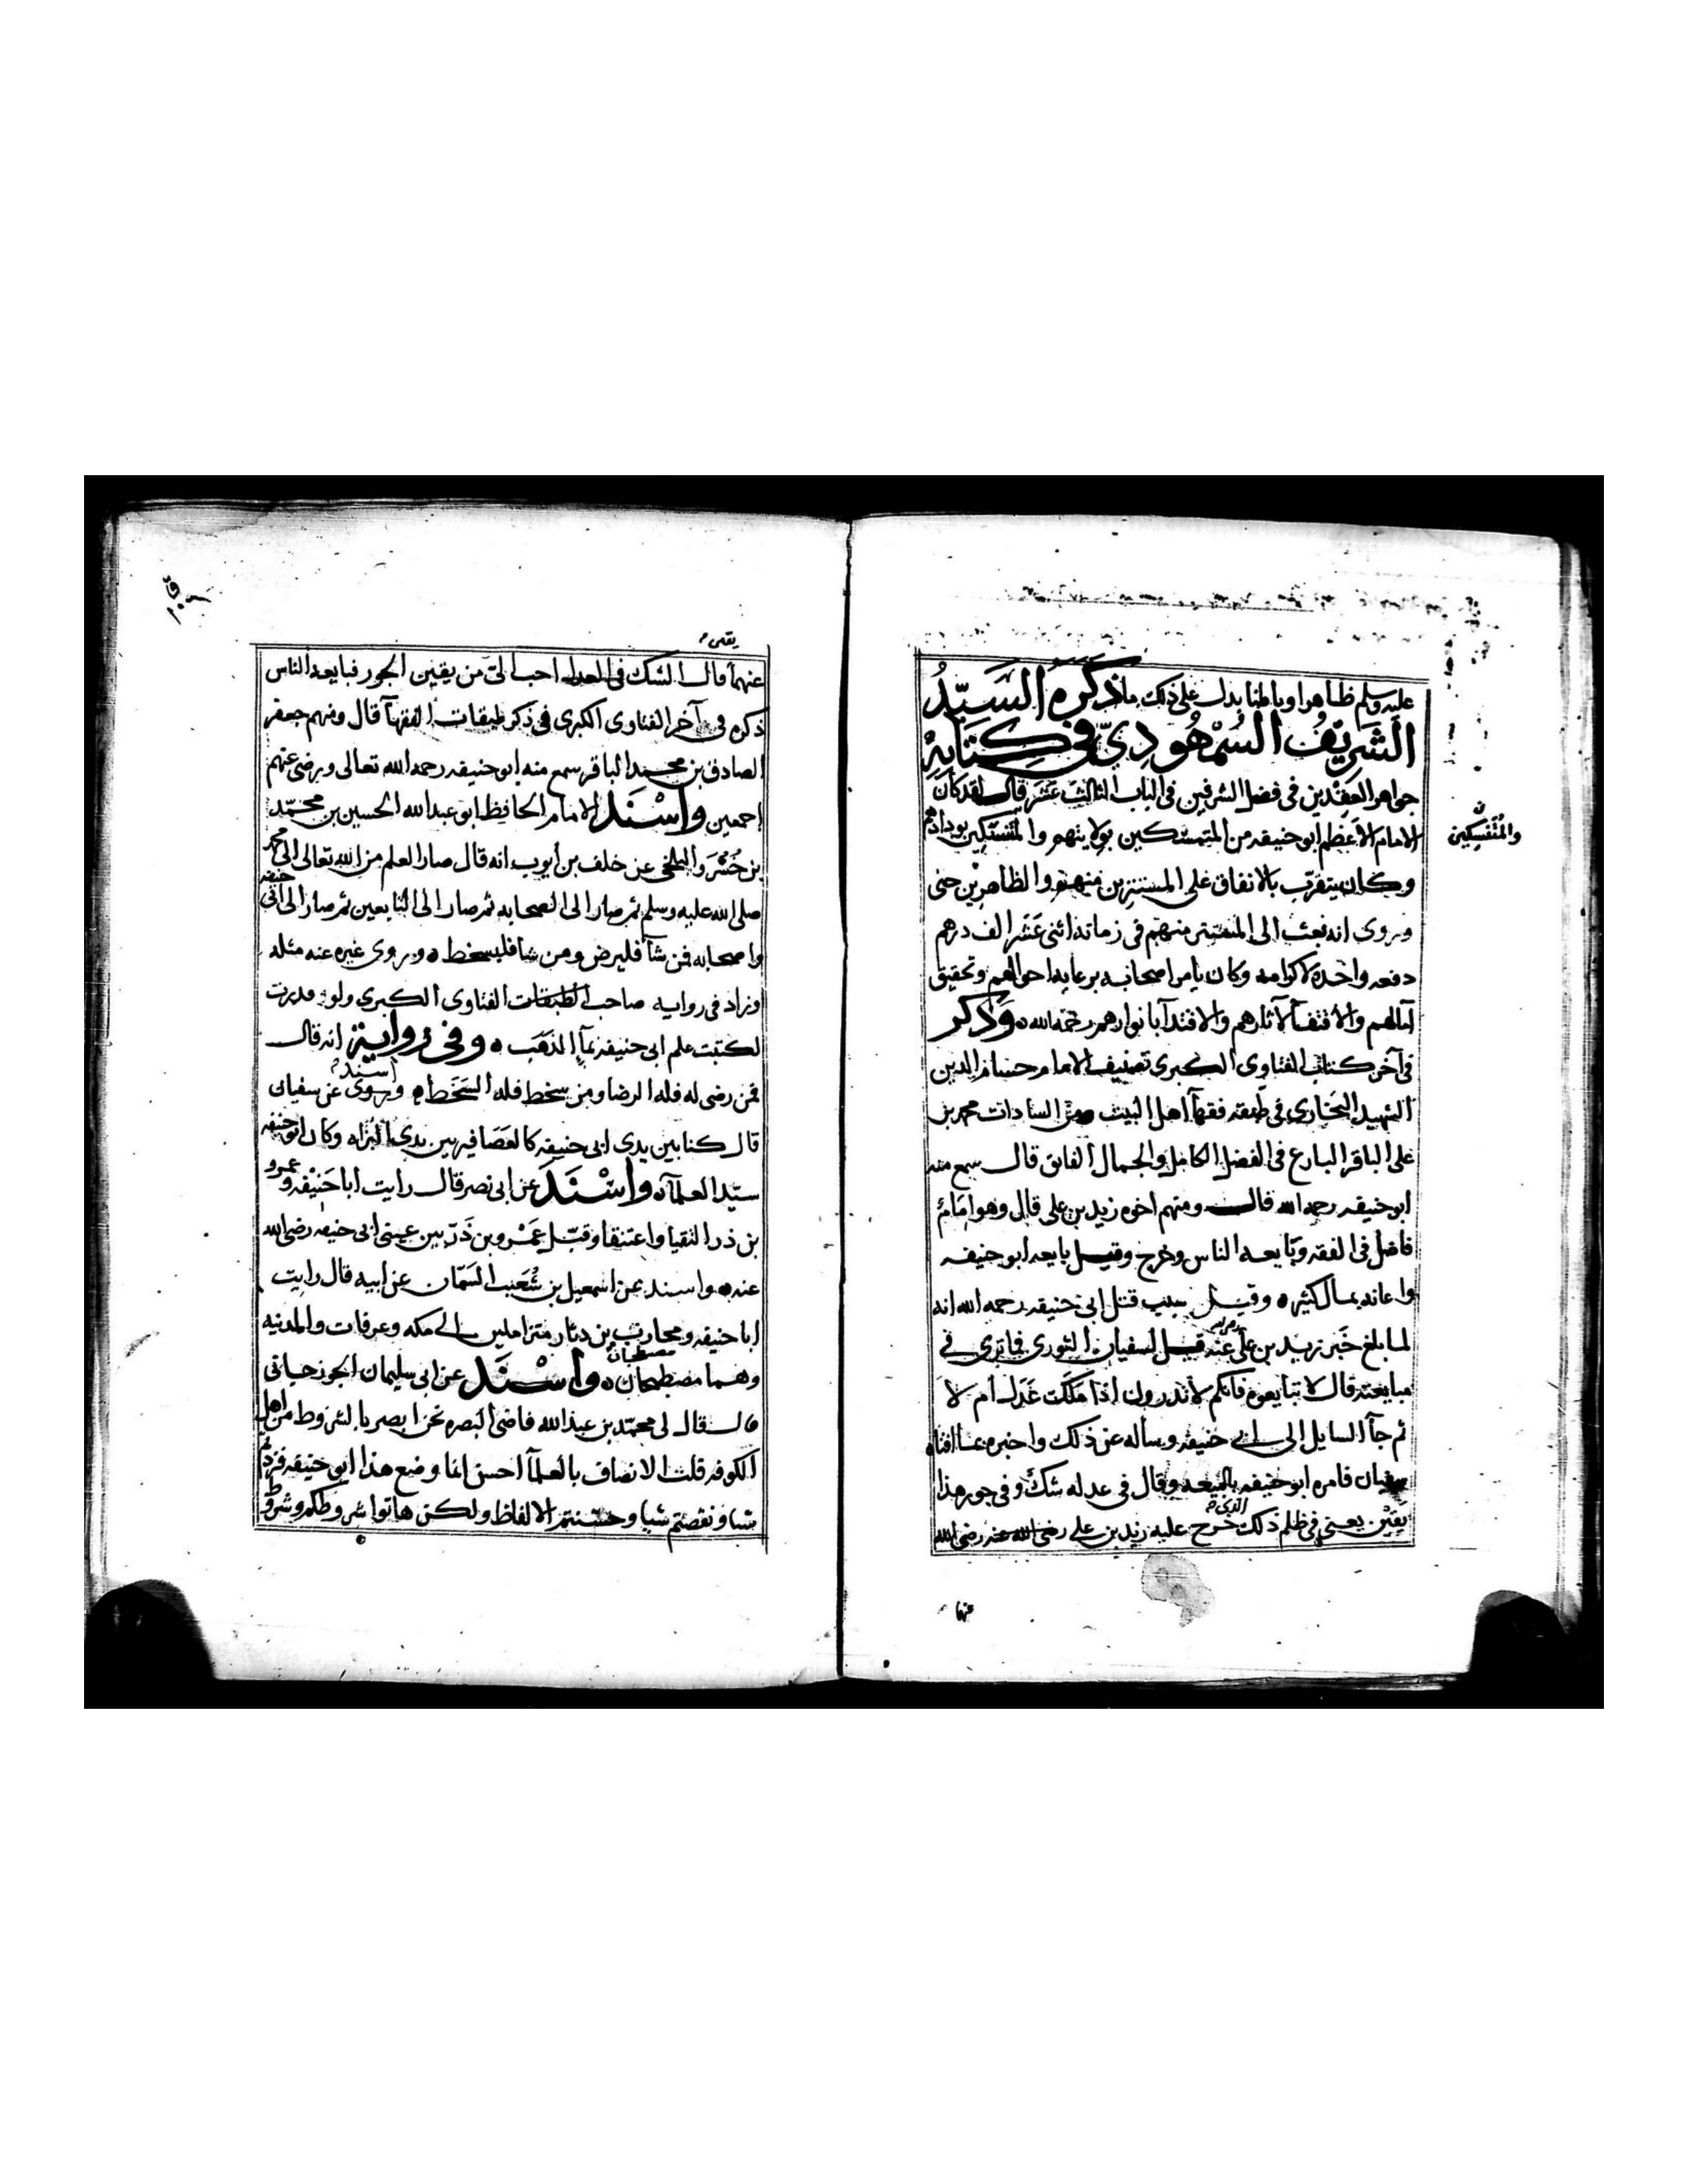 عليه وسلم ظاهرا وباطنا يدل على ذلك ما ذكره السَيّدُ
الشَرِيْفُ السُمْهُودِيّ فِي كِتَابِهْ
جواهر العِقْدين في فضل الشرفين في الباب الثالث عَشَر قال لقد كان
الامام الاعظم ابو حنيفه من المتمسكين بولايتهم والمُتَنَسّكين بودادهم
والمُتَنَسِكِين
وكان يتقرّب بالانفاق على المستترين منهم والظاهرين حتى
وروى انه بعث الى المستتر منهم في زمانه اثنى عَشَر الف درهم
دفعه واحدة لاكرامه وكان يأمر اصحابه برعايه احوالهم وتحقيق
آمالهم والاقتفآ لآثارهم والاقتدآ بانوارهم رحمه الله ه وَذكر
في آخر كتاب الفتاوى الكبرى تصنيف الامام حسام الدين
الشهيد البخارى في طبقه فقهآ اهل البيت من السادات محمد بن
على الباقر البارع في الفضل الكامل والجمال الفايق قال سمع منه
ابو حنيفه رحمه الله قال ومنهم اخوه زيد بن على قال وهو امَامٌ
فاضل في الفقه وبَايعه الناس وخرج وقيل بايعه ابو حنيفه
واعانه بمال كثيره ه وقيل سبب قتل ابى حنيفه رحمه الله انه
لما بلغ خَبَر زيد بن على عنه قيل لسفيان الثورى فما ترى في
مبايعته قال لا تبايعوه فانكم لا تدرون اذا مَلَكت عَدَل ام لا
ثم جآ السايل الى ابى حنيفه وسأله عن ذلك واخبره بما افتاه
سفيان فامره ابو حنيفه بالبيعه وقال في عدله شك وفي جور هذا
يَقِيْن يعنى في ظلم ذلك الذى خرج عليه زيد بن على رضى الله عنه رضى الله
عنهما
يقين
عنهما قال الشك في العدل احب الىّ من يقين الجور فبايعه الناس
ذكره في آخر الفتاوى الكبرى في ذكر طبقات الفقهآ قال ومنهم جعفر
الصادق بن محمد الباقر سمع منه ابو حنيفه رحمه الله تعالى ورضى عنهم
اجمعين وَاسْنَد الامام الحافظ ابو عبد الله الحسين بن محمّد
بن خُسْرَو البلخى عن خلف بن أيوب انه قال صار العلم من الله تعالى الى محمد
صلى الله عليه وسلم ثم صار الى الصحابه ثم صار الى التابعين ثم صار الى ابى حنيفه
واصحابه فمن شآ فليرض ومن شا فليسخط ه وروى غيره عنه مثله
وزاد في روايه صاحب الطبقات الفتاوى الكبرى ولو قدرت
لكتبت علم ابى حنيفه بمآ الذهَب ه وفى رواية انه قال
فمن رضى له فله الرضا ومن سخط فله السَخَط ه واسند وروى عن سفيان
قال كنا بين يدى ابى حنيفه كالعَصَافير بين يدى البُزاه وكان ابو حنيفه
سيّد العلمآ ه وَاسْنَدَ عن ابى نصر قال رايت ابا حَنِيْفه وعمرو
بن ذر التقيا واعتنقا وقبّل عَمْرو بن ذَرّ بين عينى ابى حنيفه رضى الله
عنه ه واسند عن اسمعيل بن شُعَيب السَمّان عن ابيه قال رايت
ابا حنيفه ومحارب بن دثار متزاملين الى مكه وعرفات والمدنيه
وهما مصطحبان ه وَاسْنَدَ عن ابى سليمان الجوزجانى
قال قال لى محمّد بن عبد الله قاضى البصره نحن ابصر بالشروط من اهل
الكوفه قلت الانصاف بالعلمآ احسن انما وضع هذا ابو حنيفه فزدتم
شيا ونقصتم شيا وحَسّنتم الالفاظ ولكن هاتوا شروطكم وشروط